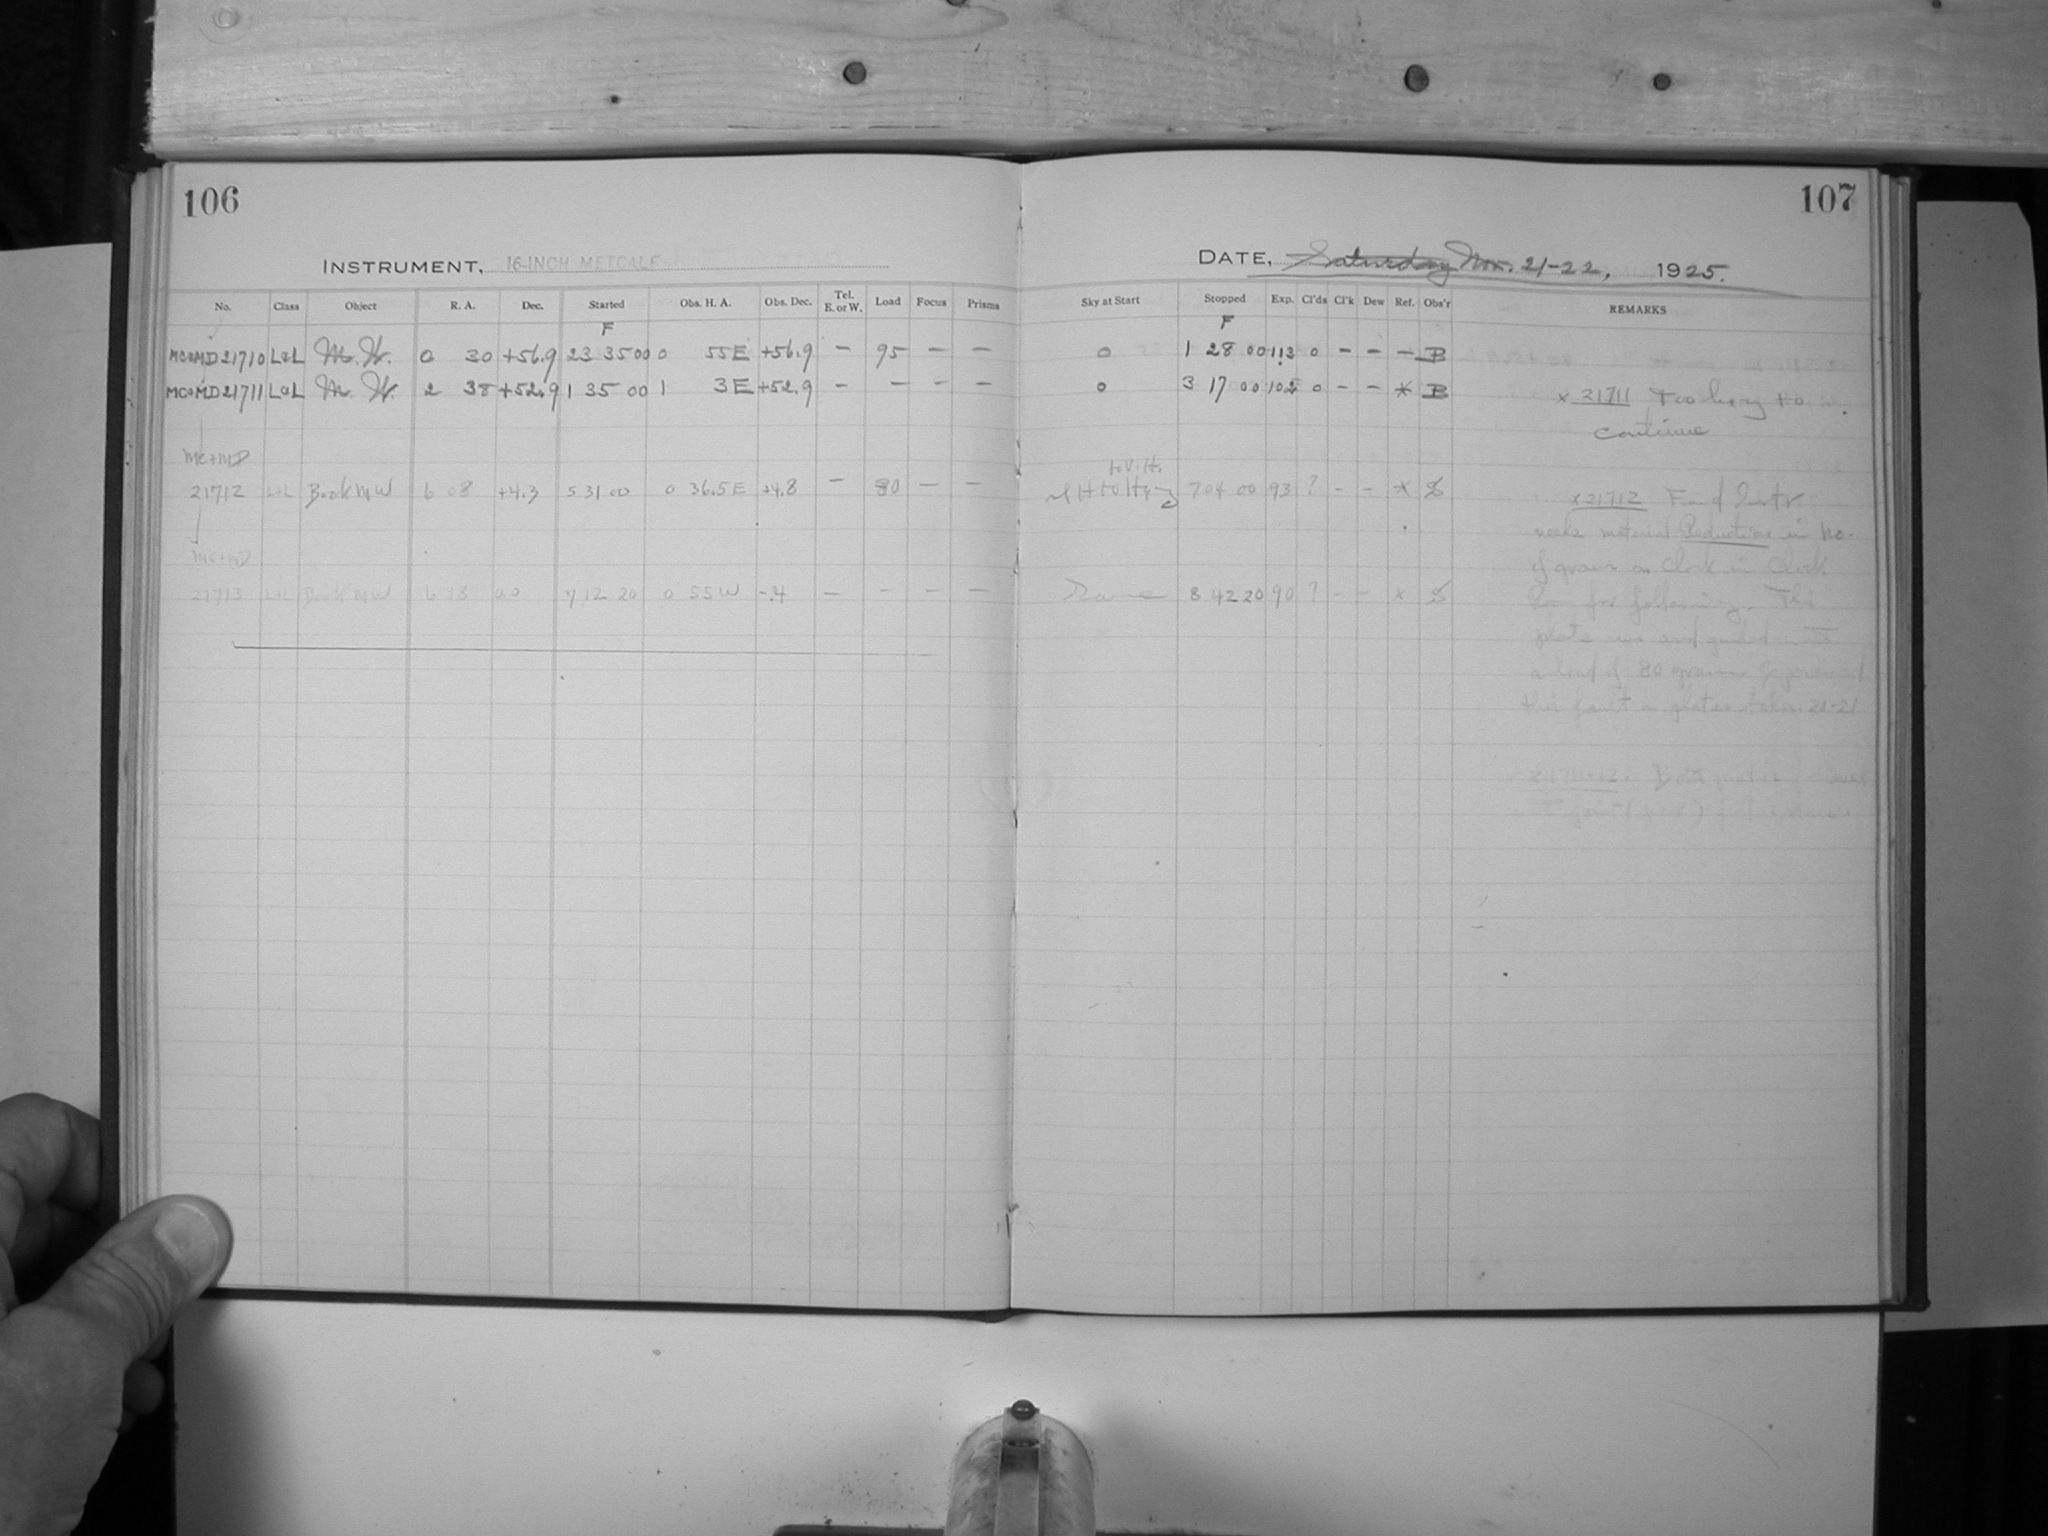 106
INSTRUMENT, 16-INCH METCALF
No. Class Object R. A. Dec. Started Obs. H. A. Obs. Dec. Tel. E. or W. Load Focus Prisms
F
MC&MD21710 L&L M. W. 0 30 +56.9 23 35 00 0 55E +56.9 – 95 – –
MC&MD21711 L&L M. W. 2 38 +52.9 1 35 00 1 3E +52.9 – – – –
MC+MD
21712 L+L Book MW 6 08 +4.3 5 31 00 0 36.5E +4.8 – 80 – –
MC+MD
21713 L+L Book MW 6 18 0.0 7 12 20 0 55W -.4 – – – –
107
DATE, Saturday Nov. 21-22, 1925.
Sky at Start Stopped Exp. Cl'ds Cl'k Dew Ref. Obs'r REMARKS
F
0 1 28 00 113 0 – – – B
0 3 17 00 102 0 – – * B
x 21711 Too hazy to
continue
to V. H.
7 04 00 93 ? – – *
x 21712 Find Instr
needs material Reduction in no.
of grams on Clock in Clock
Room for following. This
plate run and guided with
a load of 80 grams
this fault on plates taken 20-21
Same 8 42 20 90 ? – – x